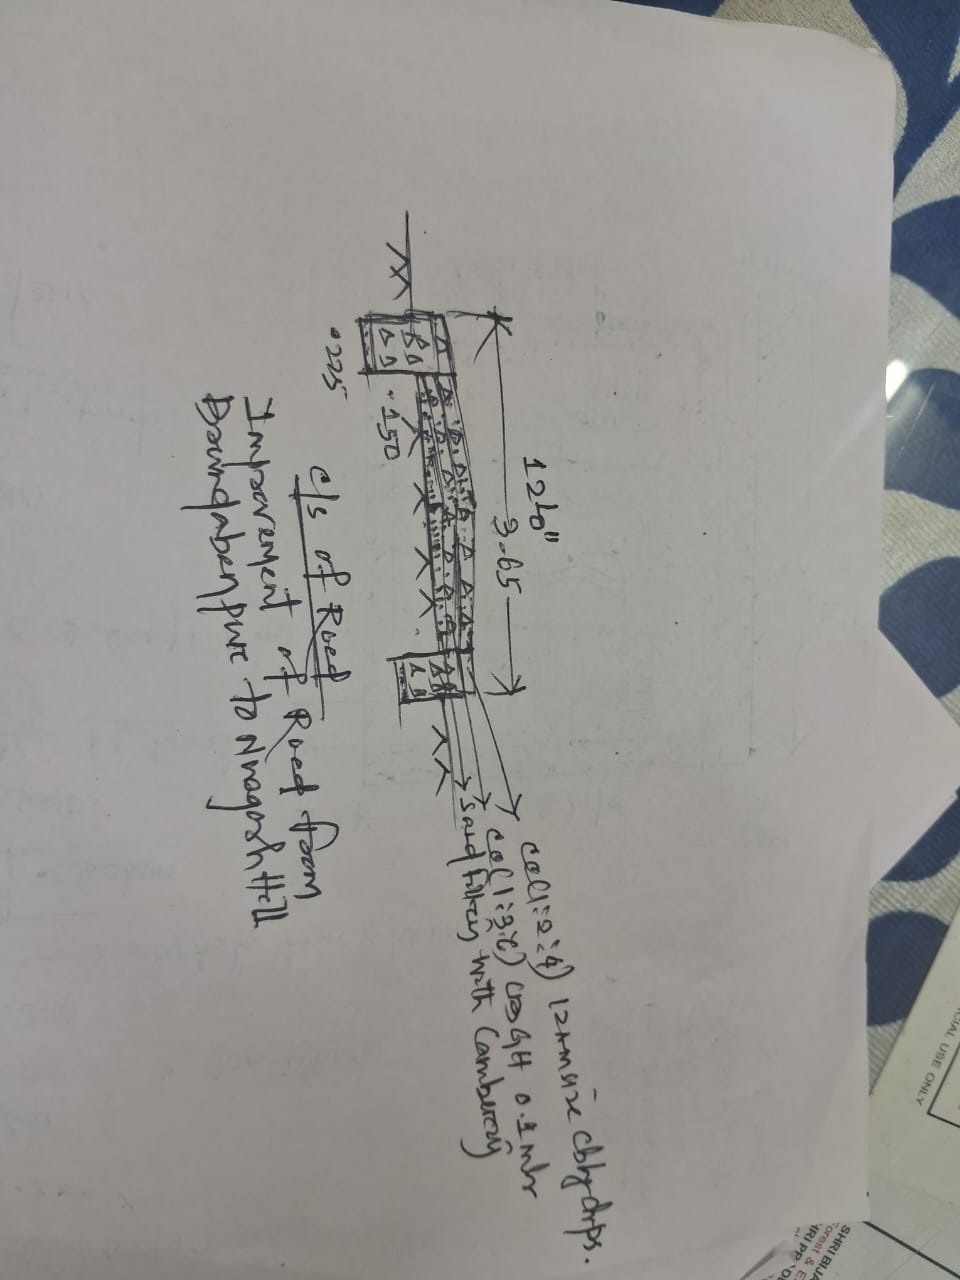 12'-0"
3.65
.225
.150
CC(1:2:4) 12mm size cbhg chips.
CC(1:3:6) CBGH 0.1 mtr
Sand filling with Cambering
c/s of Road
Improvement of Road from
to
CIAL USE ONLY
SHRI BIJA
Forest & E